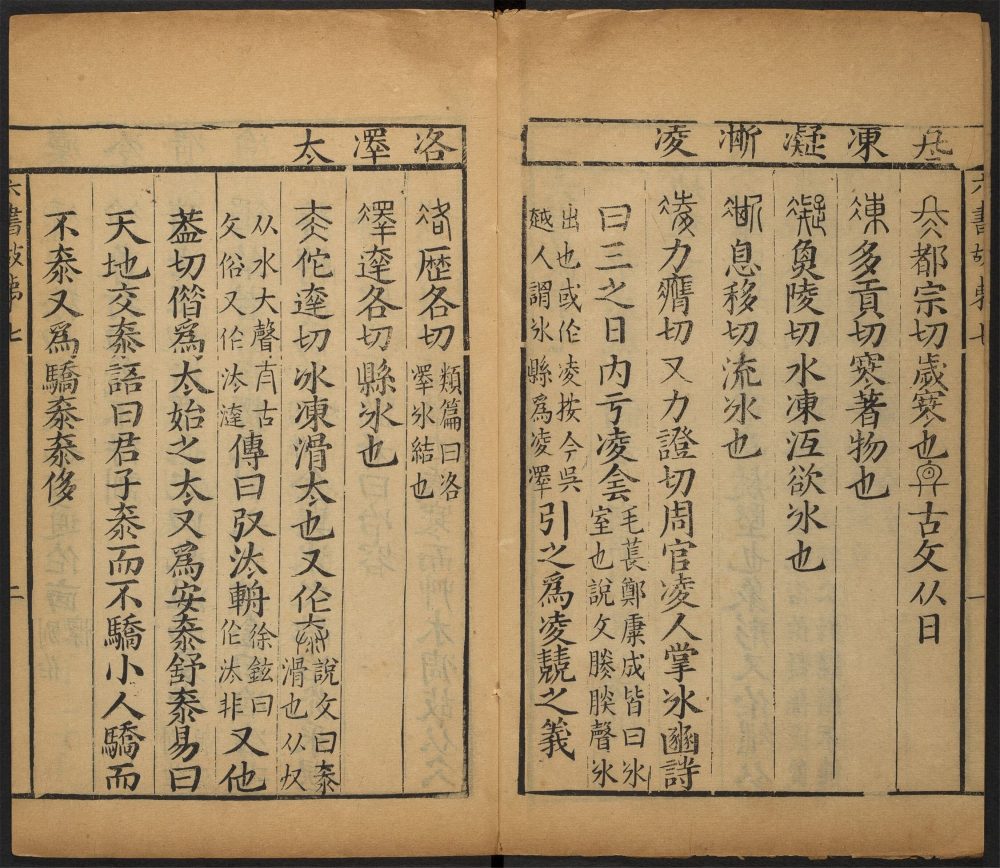 凍凝澌凌
都宗切歲寒也古文从日
多貢切寒著物也
魚陵切水凍冱欲冰也
息移切流冰也
力膺切又力證切周官凌人掌冰豳詩
曰三之日内于凌侌毛萇鄭康成皆曰冰
室也說文媵朕聲冰
出也或作凌按今吳
越人謂冰縣為凌澤引之為凌兢之義
六書故弟七
洛澤太
歷各切類篇曰洛
澤冰結也
達各切縣冰也
佗達切冰凍滑太也又作說文曰泰
滑也从廾
从水大聲古
文俗又作汰澾傳曰汏輈徐鉉曰
作汰非又他
蓋切偕為太始之太又為安泰舒泰易曰
天地交泰語曰君子泰而不驕小人驕而
不泰又為驕泰泰侈
六書故弟七
二